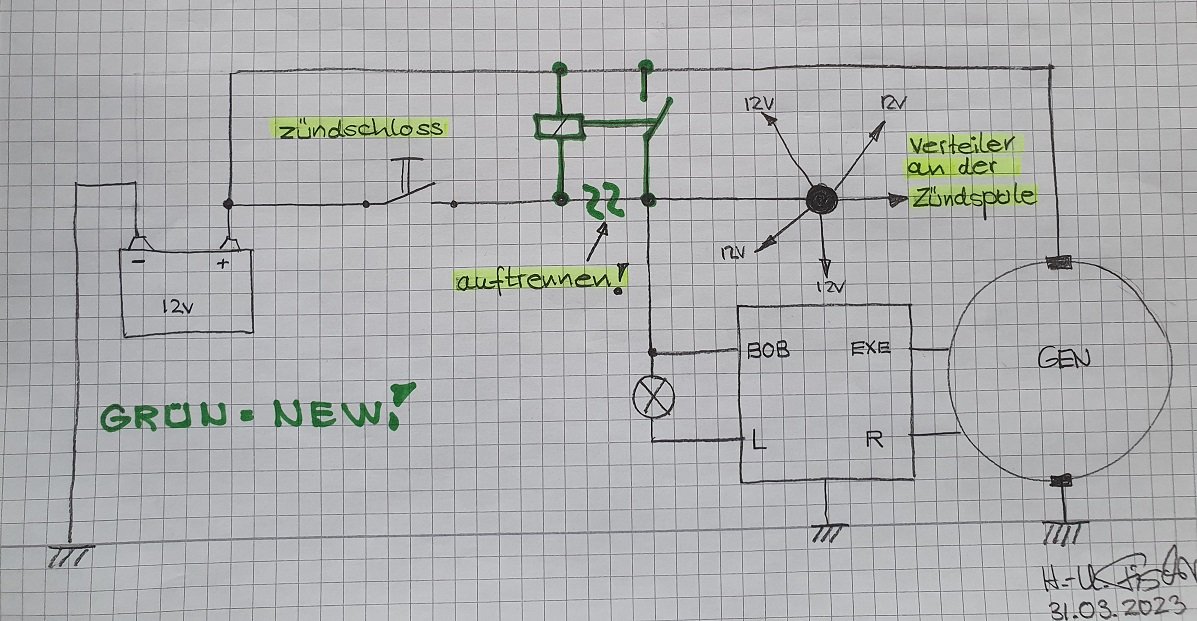 zündschloss
12V
12V
Verteiler
an der
Zündspule
12V
12V
auftrennen!
- +
12V
BOB EXE
L R
GEN
GRÜN = NEW!
H.-U. Fischer
31.03.2023